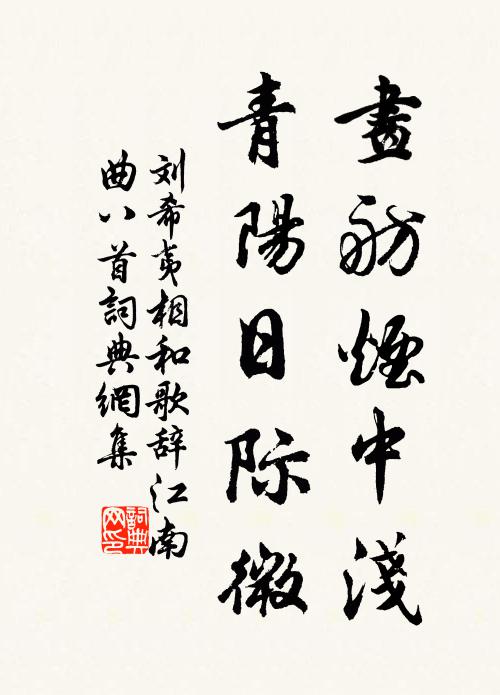 畫舫煙中淺
青陽日际微
刘希夷相和歌辞江南
曲八首詞典網集
詞典网印